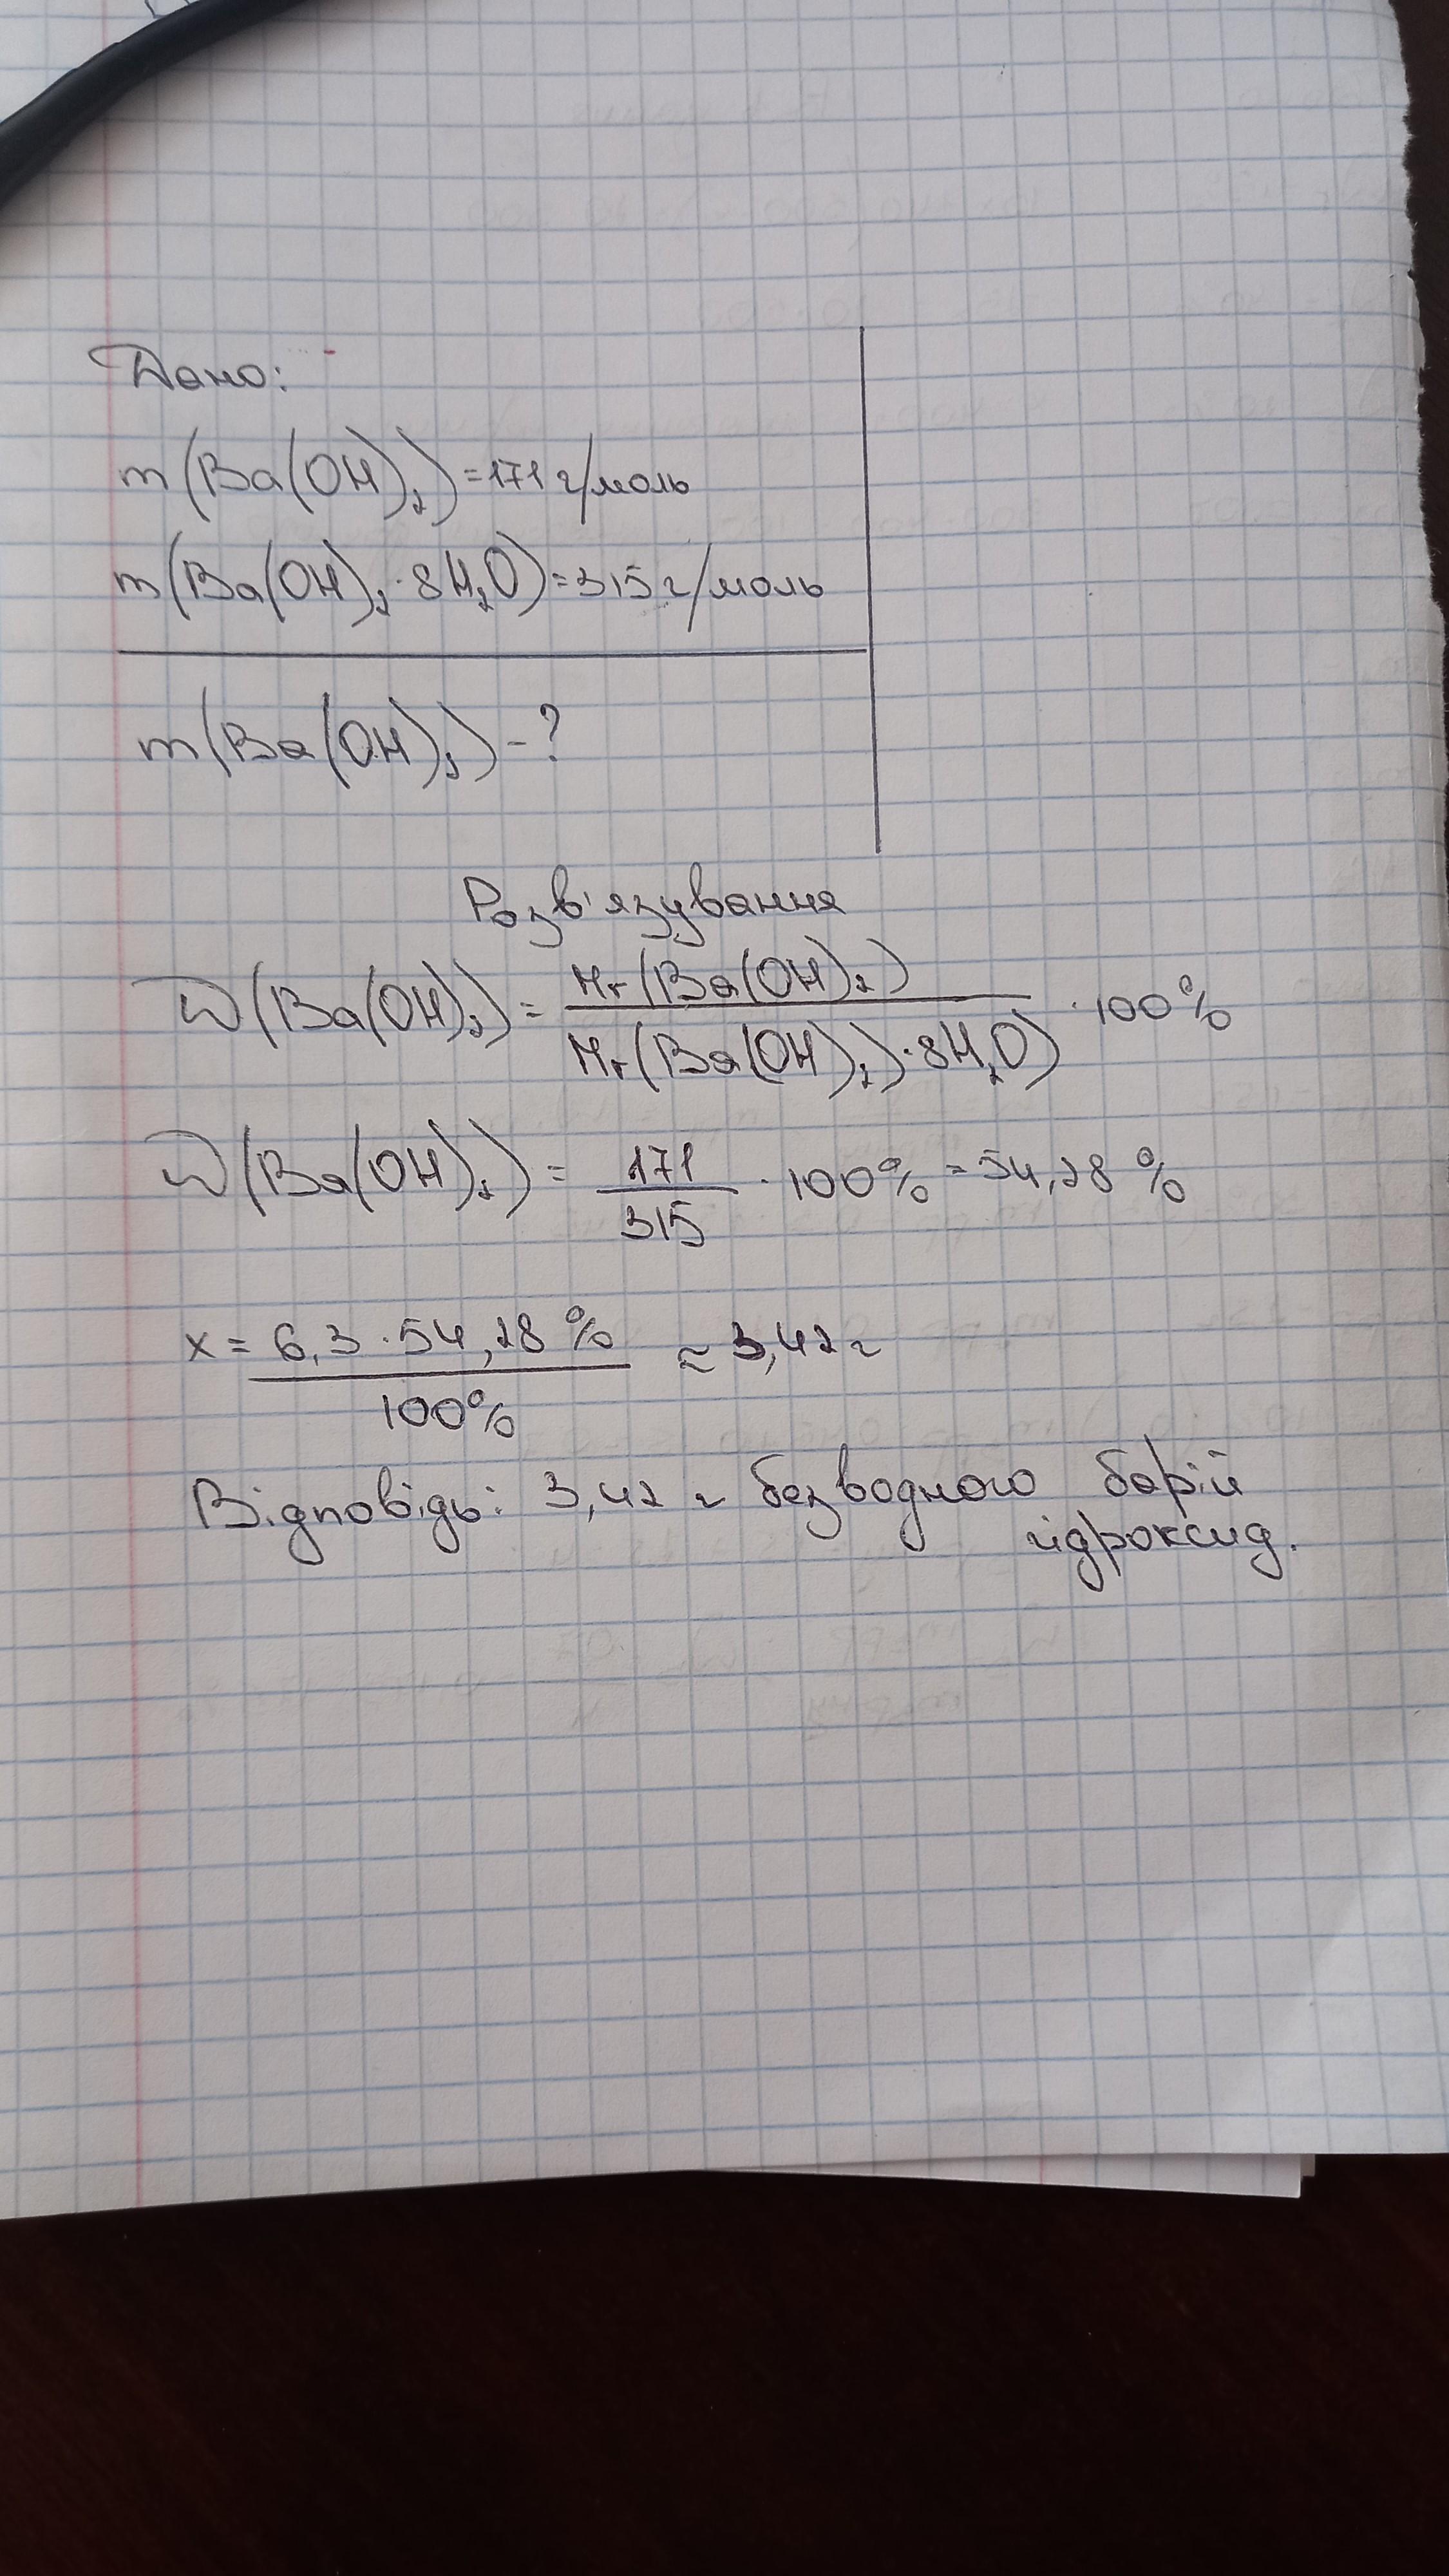 Дано:
m(Ba(OH)₂)=171 г/моль
m(Ba(OH)₂·8H₂O)=315 г/моль
m(Ba(OH)₂)-?
Розв'язування
W(Ba(OH)₂) = Mr(Ba(OH)₂) / Mr(Ba(OH)₂)·8H₂O) · 100%
W(Ba(OH)₂) = 171 / 315 · 100% = 54,28 %
x = 6,3·54,28% / 100% ≈ 3,42 г
Відповідь: 3,42 г безводного барій
гідроксид.